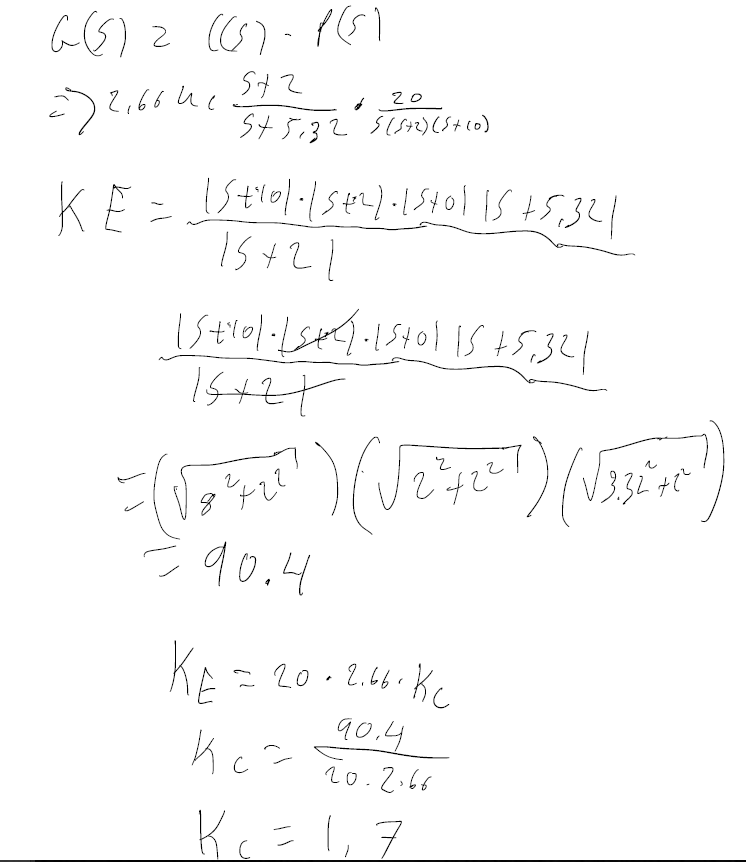 G(S) = C(S) · P(S)
=> 2,66 Kc (S+2)/(S+5,32) · 20/(S(S+2)(S+10))
KE = |S+10|·|S+2|·|S+0| |S+5,32| / |S+2|
|S+10|·|S+2|·|S+0| |S+5,32| / |S+2|
= (√(8²+2²)) (√(2²+2²)) (√(3.32²+2²))
= 90.4
KE = 20 · 2.66 · Kc
Kc = 90.4 / (20 · 2.66)
Kc = 1,7